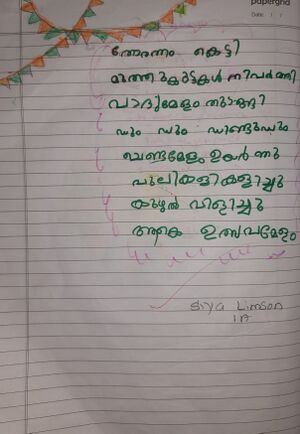 papergrid
Date: / /
തോരണം കെട്ടി
മുത്തുകുടകൾ നിവർത്തി
പാദ്യമേളം തുടങ്ങി
ഡും ഡും ഡിണ്ടുഡും
ചെണ്ടമേളം ഉയർന്നു
പുലികളികളിച്ചു
കുഴൽ വിളിച്ചു
ആകെ ഉത്സവമേളം
Siya Limson
1A